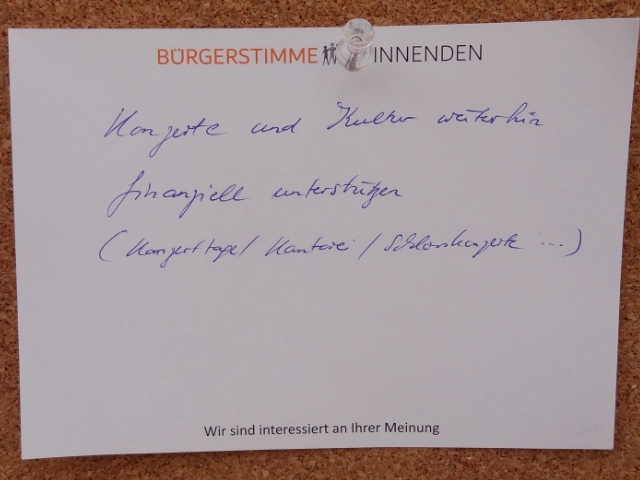 BÜRGERSTIMME INNENDEN
Konzerte und Kultur weiterhin
finanziell unterstützen
(Konzerttage / Kantorei / Schlosskonzerte ...)
Wir sind interessiert an Ihrer Meinung